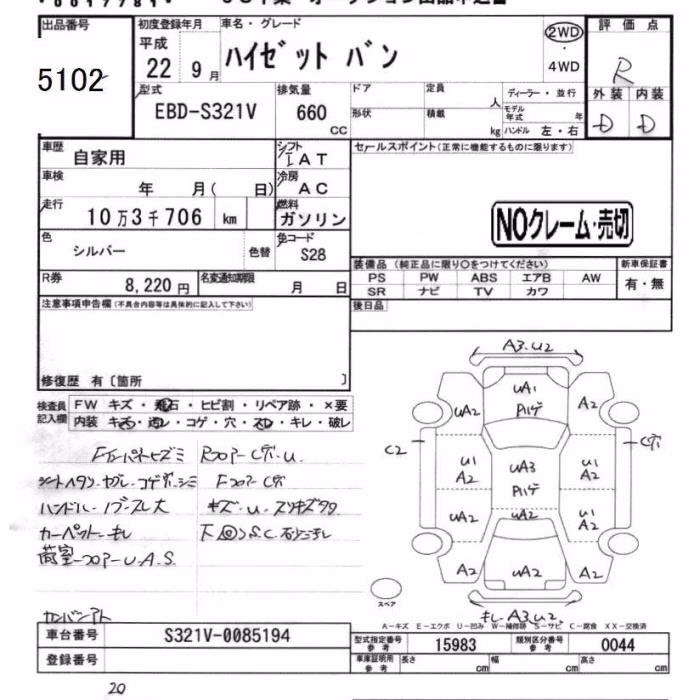 出品番号 初度登録年月 車名・グレード 評価点
5102 平成 22 9月 ハイゼット バン 2WD 4WD R
型式 EBD-S321V 排気量 660 CC ドア 定員 人 ディーラー・並行 外装 内装
形状 積載 kg モデル年式 年 ハンドル 左・右 D D
車歴 自家用 シフト IAT セールスポイント(正常に機能するものに限ります)
車検 年 月( 日) 冷房 AC
走行 10万3千706 km 燃料 ガソリン NOクレーム・売切
色 シルバー 色替 色コード S28
装備品 (純正品に限り〇をつけてください) 新車保証書
R券 8,220円 名変通知期限 月 日 PS PW ABS エアB AW 有・無
SR ナビ TV カワ
注意事項申告欄(不具合内容等は具体的に記入して下さい) 後日品
修復歴 有〔箇所 〕
検査員記入欄 FW キズ・飛石・ヒビ割・リペア跡・×要
内装 キズ・汚レ・コゲ・穴・スレ・キレ・破レ
A3.U2
UA1
Pハゲ
UA2 A2
C2 C穴
U1 A2 UA3 U1 A2
Pハゲ
UA2 UA2 U1 A2
A2 UA2 A2
キレ A3.U2
RフロアーC穴.U.
FフロアーC穴
ハンドル・ノブ-スレ大
カーペット-キレ
荷室-フロアーU.A.S.
カンバンアト
スペア
A-キズ E-エクボ U-凹み W-補修跡 S-サビ C-腐食 XX-交換済
車台番号 S321V-0085194 型式指定番号 参考 15983 類別区分番号 参考 0044
登録番号 車庫証明用 参考 長さ cm 幅 cm 高さ cm
20